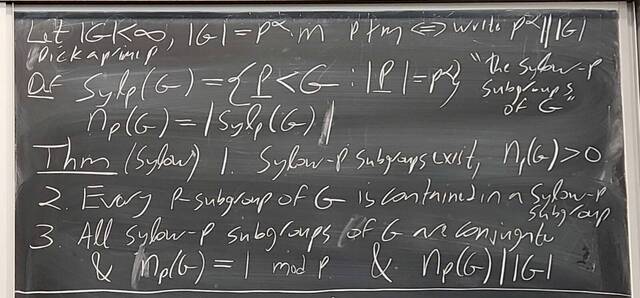 Let |G|<∞, |G| = p^α · m p∤m ⇔ write p^α || |G|
Pick a prime p
Def Sylp(G) = {P < G : |P| = p^α} "the Sylow-P
subgroups
of G"
np(G) = |Sylp(G)|
Thm (Sylow) 1. Sylow-P subgroups exist, np(G) > 0
2. Every P-subgroup of G is contained in a Sylow-P
subgroup
3. All Sylow-P subgroups of G are conjugate
& np(G) = 1 mod p & np(G) | |G|